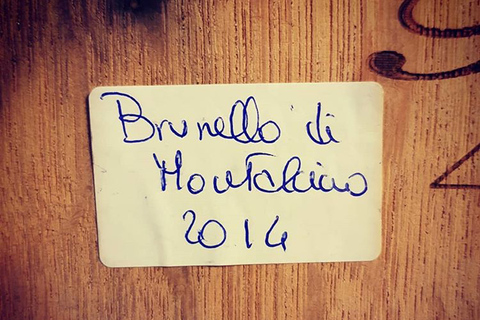 Brunello di
Montalcino
2014